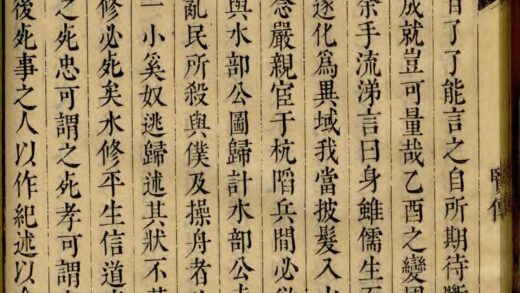 了了能言之自所期待斷
成就豈可量哉乙酉之變
余手流涕言曰身雖儒生
遂化爲異域我當披髮入
念嚴親宦于杭䧟兵間必
與水部公圖歸計水部公
亂民所殺與僕及操舟者
一小奚奴逃歸述其狀不
修必死矣水修平生信道
之死忠可謂之死孝可謂
後死事之人以作紀述以